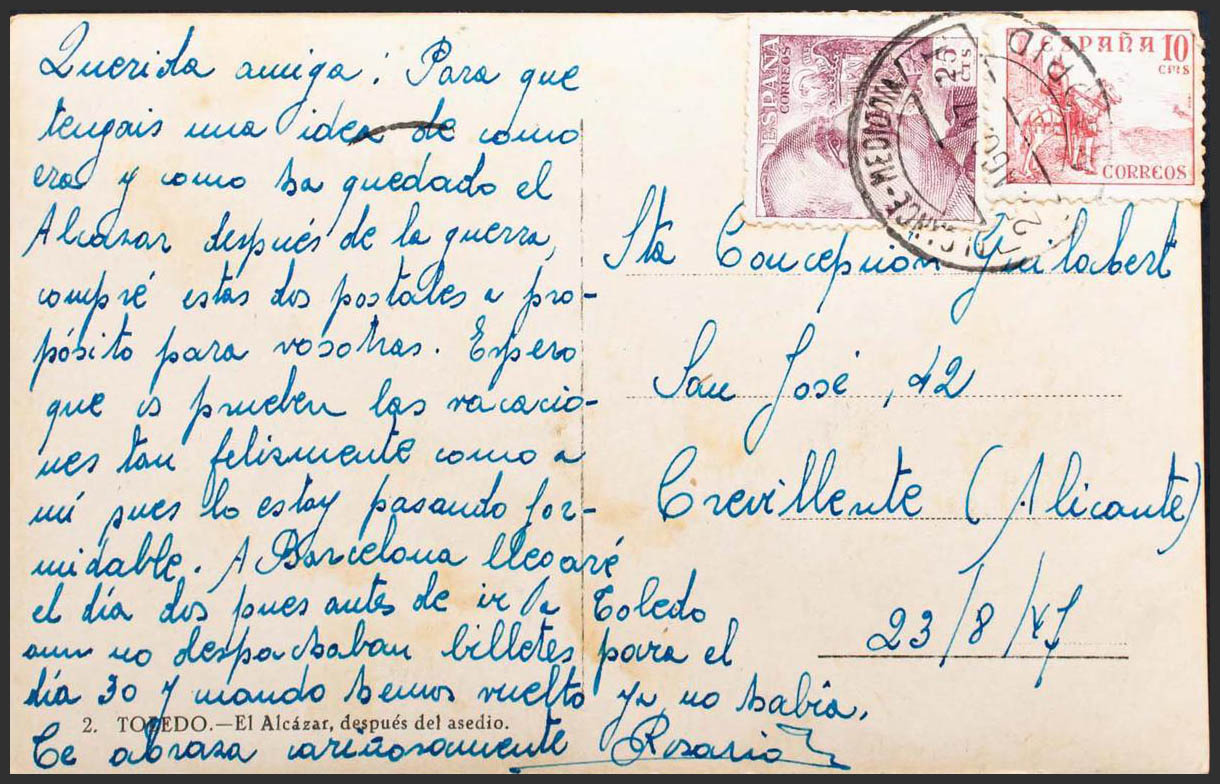 Querida amiga: Para que
tengais una idea de como
era y como ha quedado el
Alcazar después de la guerra,
compré estas dos postales a pro-
pósito para vosotras. Espero
que os prueben las vacacio-
nes tan felizmente como a
mí pues lo estoy pasando for-
midable. A Barcelona llegaré
el día dos pues antes de ir a Toledo
aun no despachaban billetes para el
día 30 y cuando hemos vuelto ya no había.
Te abraza cariñosamente Rosario
2. TOLEDO.—El Alcázar, después del asedio.
ESPAÑA
CORREOS
CTS
ESPAÑA 10
CTS
CORREOS
ALCANCE-MEDIODIA
Sta Concepción Guilabert
San José, 42
Crevillente (Alicante)
23/8/47